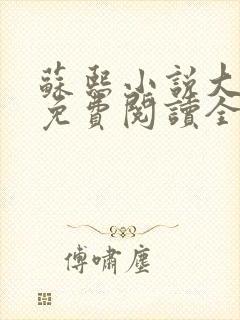 蘇熙小說大
免費閱讀全
傅嘯塵